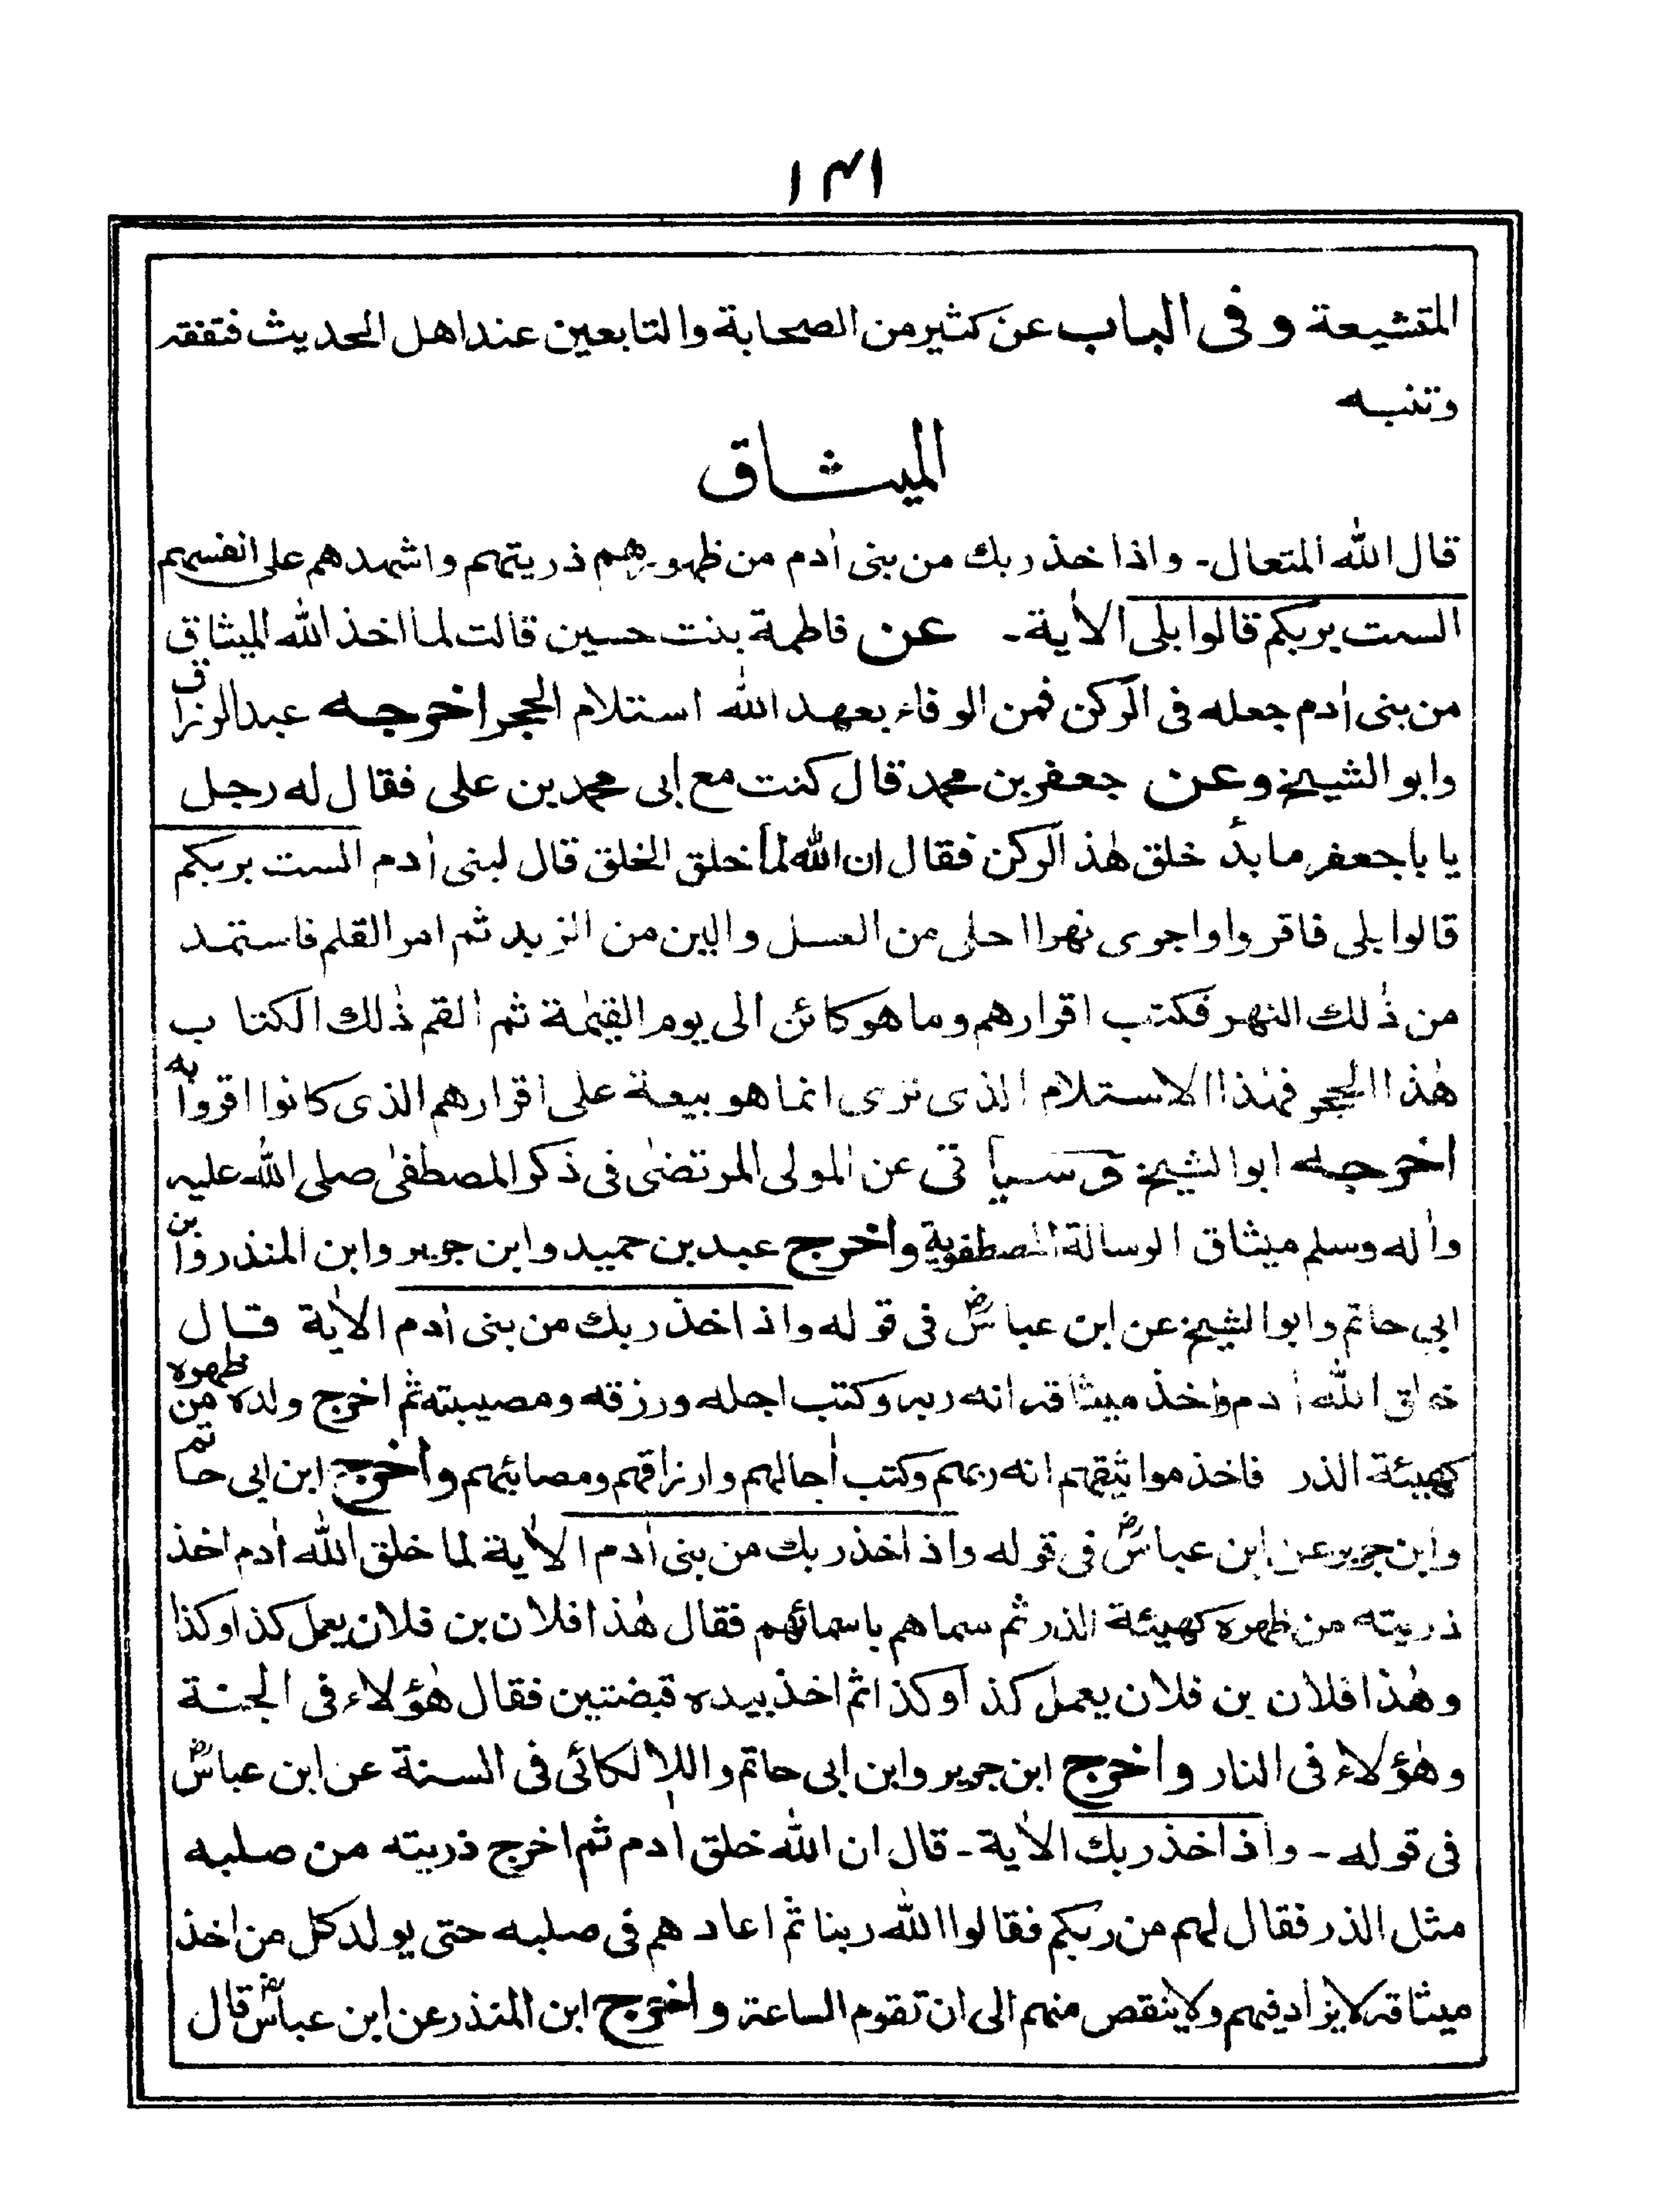 ١٣١
المتشيعة وفى الباب عن كثير من الصحابة والتابعين عند اهل الحديث فتفقه
وتنبه
الميثاق
قال الله المتعال۔ واذ اخذ ربك من بنى اٰدم من ظهورهم ذريتهم واشهدهم على انفسهم
الست بربكم قالوا بلى الاٰية۔ عن فاطمة بنت حسين قالت لما اخذ الله الميثاق
من بنى اٰدم جعله فى الركن فمن الوفاء بعهد الله استلام الحجر اخرجه عبد الرزاق
وابو الشيخ وعن جعفر بن محمد قال كنت مع ابى محمد بن على فقال له رجل
يا با جعفر ما بدأ خلق هٰذ الركن فقال ان الله لما خلق الخلق قال لبنى اٰدم الست بربكم
قالوا بلى فاقروا واجرى نهرا احلى من العسل والين من الزبد ثم امر القلم فاستمد
من ذٰلك النهر فكتب اقرارهم وما هو كائن الى يوم القيٰمة ثم القم ذٰلك الكتاب
هٰذا الحجر فهٰذا الاستلام الذى ترى انما هو بيعة على اقرارهم الذى كانوا اقروا به
اخرجه ابو الشيخ وسياتى عن المولى المرتضىٰ فى ذكر المصطفىٰ صلى الله عليه
واٰله وسلم ميثاق الرسالة المصطفوية واخرج عبد بن حميد وابن جرير وابن المنذر وابن
ابى حاتم وابو الشيخ عن ابن عباسؓ فى قوله واذ اخذ ربك من بنى اٰدم الاٰية قال
خلق الله اٰدم واخذ ميثاقه انه ربه وكتب اجله ورزقه ومصيبته ثم اخرج ولده من ظهره
كهيئة الذر فاخذ مواثيقهم انه ربهم وكتب اٰجالهم وارزاقهم ومصائبهم واخرج ابن ابى حاتم
وابن جرير عن ابن عباسؓ فى قوله واذ اخذ ربك من بنى اٰدم الاٰية لما خلق الله اٰدم اخذ
ذريته من ظهره كهيئة الذر ثم سماهم باسمائهم فقال هٰذا فلان بن فلان يعمل كذا وكذا
وهٰذا فلان بن فلان يعمل كذا وكذا ثم اخذ بيده قبضتين فقال هٰؤلاء فى الجنة
وهٰؤلاء فى النار واخرج ابن جرير وابن ابى حاتم واللالكائى فى السنة عن ابن عباسؓ
فى قوله۔ واذ اخذ ربك الاٰية۔ قال ان الله خلق اٰدم ثم اخرج ذريته من صلبه
مثل الذر فقال لهم من ربكم فقالوا الله ربنا ثم اعادهم فى صلبه حتى يولد كل من اخذ
ميثاقه لا يزاد فيهم ولا ينقص منهم الى ان تقوم الساعة واخرج ابن المنذر عن ابن عباسؓ قال